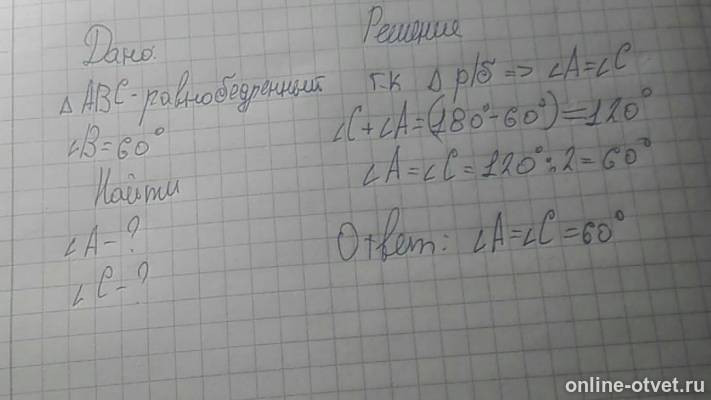 Дано:
△ABC-равнобедренный
∠B=60°
Найти
∠A-?
∠C-?
Решение
т.к △ р/б => ∠A=∠C
∠C+∠A=(180°-60°)=120°
∠A=∠C=120°:2=60°
Ответ: ∠A=∠C=60°
online-otvet.ru